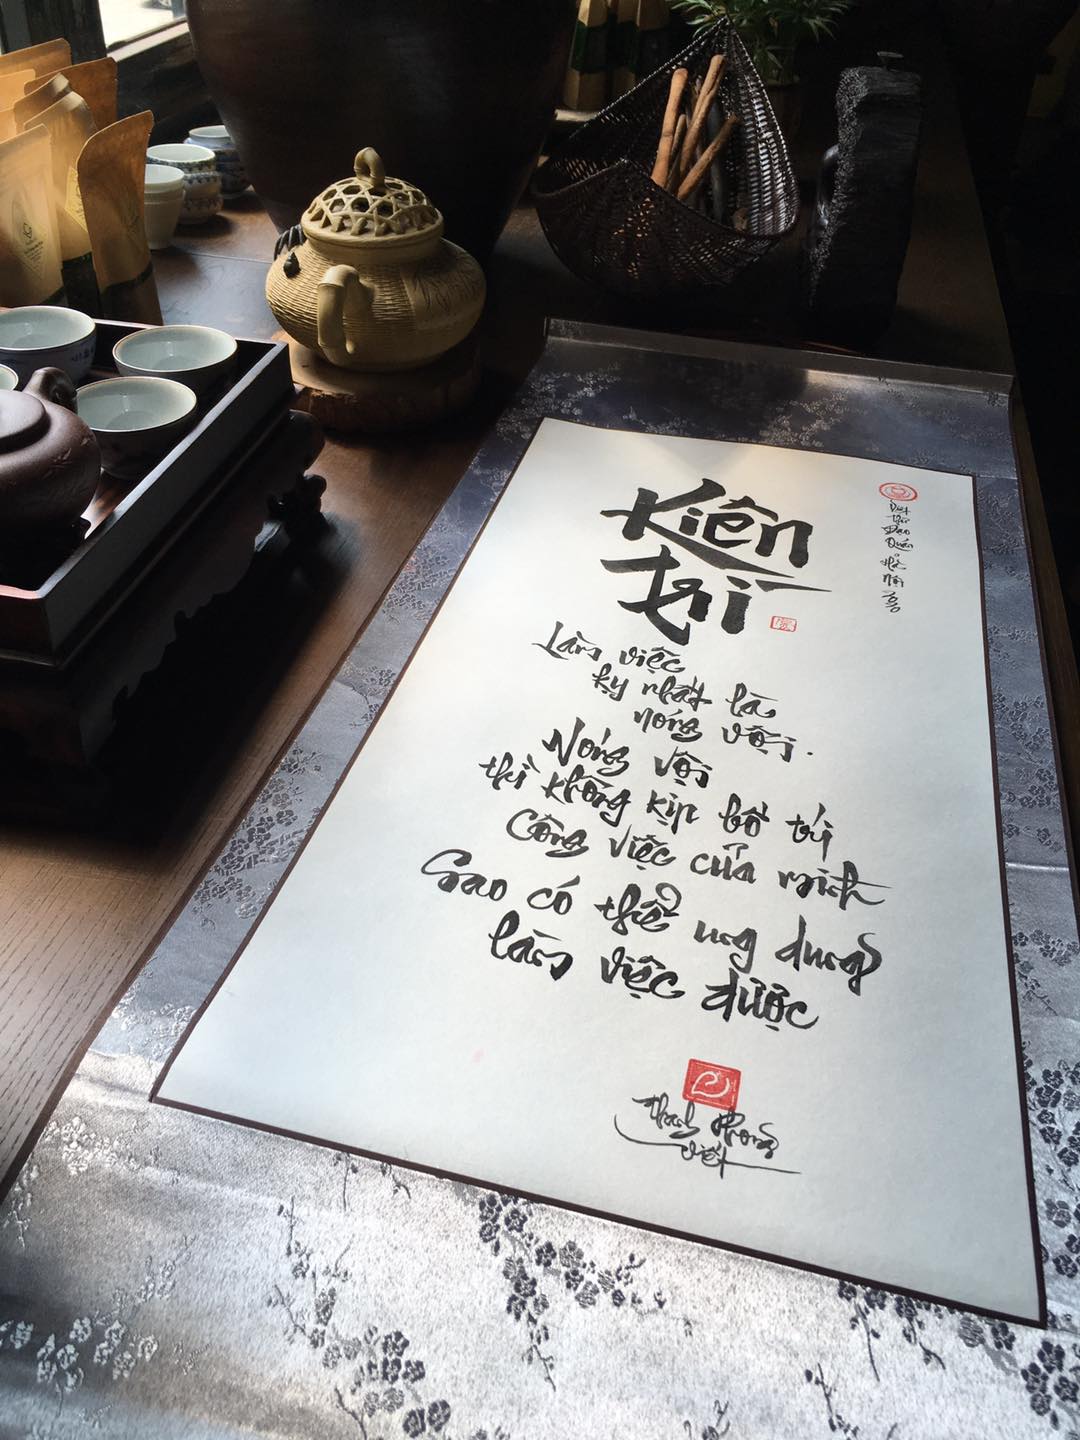 Kiên
trì
Làm việc
kỵ nhất là
nóng vội.
Nóng vội
thì không kịp bố trí
công việc của mình
Sao có thể ung dung
làm việc được
Thanh Phong
viết
Việt
Trà
Đạo
Quán
Hà
Nội